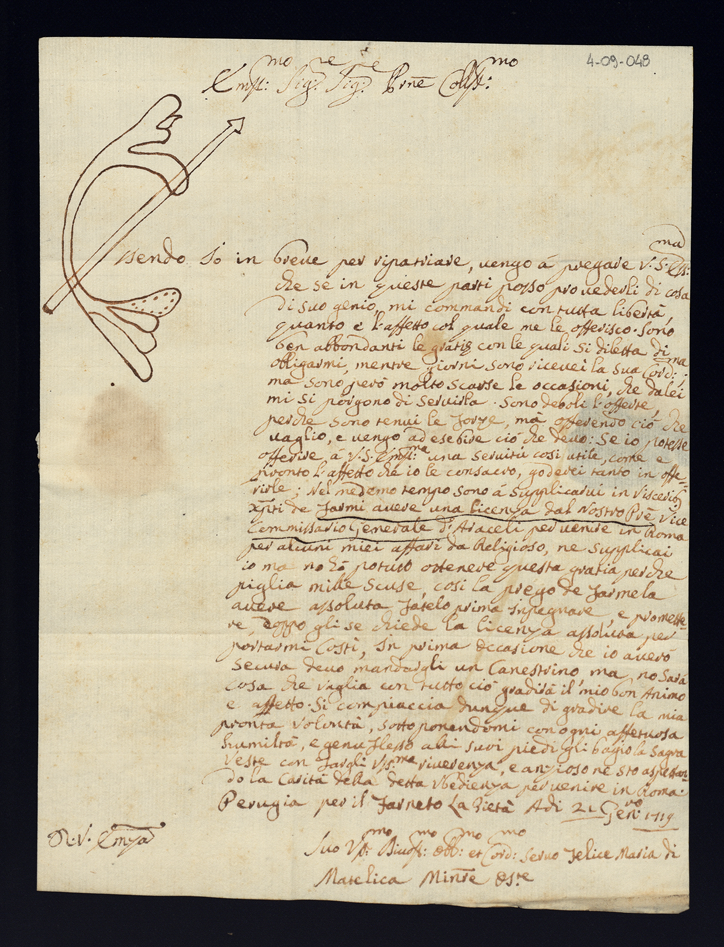 4-09-048
Em.mo Sig.re Sig.re Prñe Col.mo
ssendo Io in breve per ripatriare, vengo á pregare V.S. E.ma
che se in queste parti posso provederli di cosa
di suo genio, mi commandi con tutta libertá,
quanto é l'affetto col quale me le offerisco. Sono
ben abbondanti le gratie con le quali si diletta di
obligarmi, mentre giorni sono ricevei la sua Cord.ma;
ma sono peró molto scarse le occasioni, che da lei
mi si porgono di servirla. Sono deboli l'offerte,
perche sono tenui le forze, má offerendo ció che
vaglio, e vengo ad esebire ció che devo: Se io potesse
offerire á V.S. Em.ma una servitú cosi utile, come é
pronto l'affetto che io le consacro, goderei tanto in offe
rirle; Nel medemo tempo sono á supplicarvi in visceribs
Xpti de farmi avere una licenza dal Nostro Pre Vice
Commissario Generale d'Araceli per venire in Roma
per alcuni miei affari da Religioso, ne supplicai
io ma nó hó potuto ottenere questa gratia perche
piglia mille scuse, cosi la prego de farmela
avere assoluta, fatelo prima inpegnare, e promette
re, doppo gli se chiede la licenza assoluta per
portarmi costi, In prima occasione che io averó
secura devo mandargli un Canestrino ma, nó sará
cosa che vaglia con tutto ció gradirá il mio bon Animo
e affetto. Si compiaccia dunque di gradire la mia
pronta volontá, sottoponendomi con ogni affettuosa
humiltá, e genuflesso alli suoi piedi gli bagio la Sagra
Veste con fargli riverenza, e ansioso ne sto aspettan
do la Caritá della detta Vbedienza per venire in Roma.
Perugia per il Farneto La Pietá Adi 21 Gen.ro 1719
Suo Servo Felice Maria di
Matelica Minre Oss.te